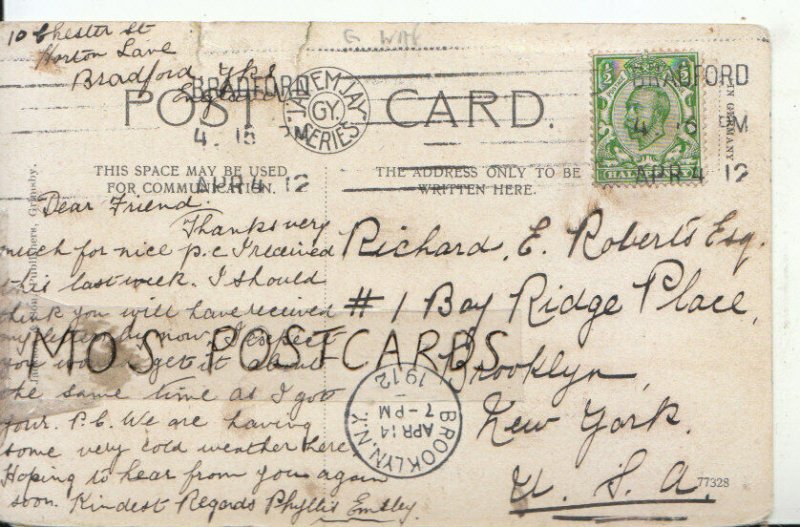 10 Chester St
Horton Lane
Bradford Yks
G WAY
BRADFORD
4. 15
APR 4 12
POST CARD.
JAY EM JAY
GY.
SERIES
BRADFORD
PM
APR 4 12
HAL
IN GERMANY
THIS SPACE MAY BE USED
FOR COMMUNICATION.
THE ADDRESS ONLY TO BE
WRITTEN HERE.
Dear Friend.
Thanks very
much for nice p.c I received
this last week. I should
think you will have received
my letter by now, I expect
you get it about
the same time as I got
your. P.C. We are having
some very cold weather here
Hoping to hear from you again
soon. Kindest Regards Phyllis Emsley.
Richard. E. Roberts Esq.
# 1 Bay Ridge Place,
Brooklyn,
New York.
U. S. A.
MOS POSTCARDS
BROOKLYN, N.Y.
APR 14
7-PM
1912
77328
Publishers, Grimsby.